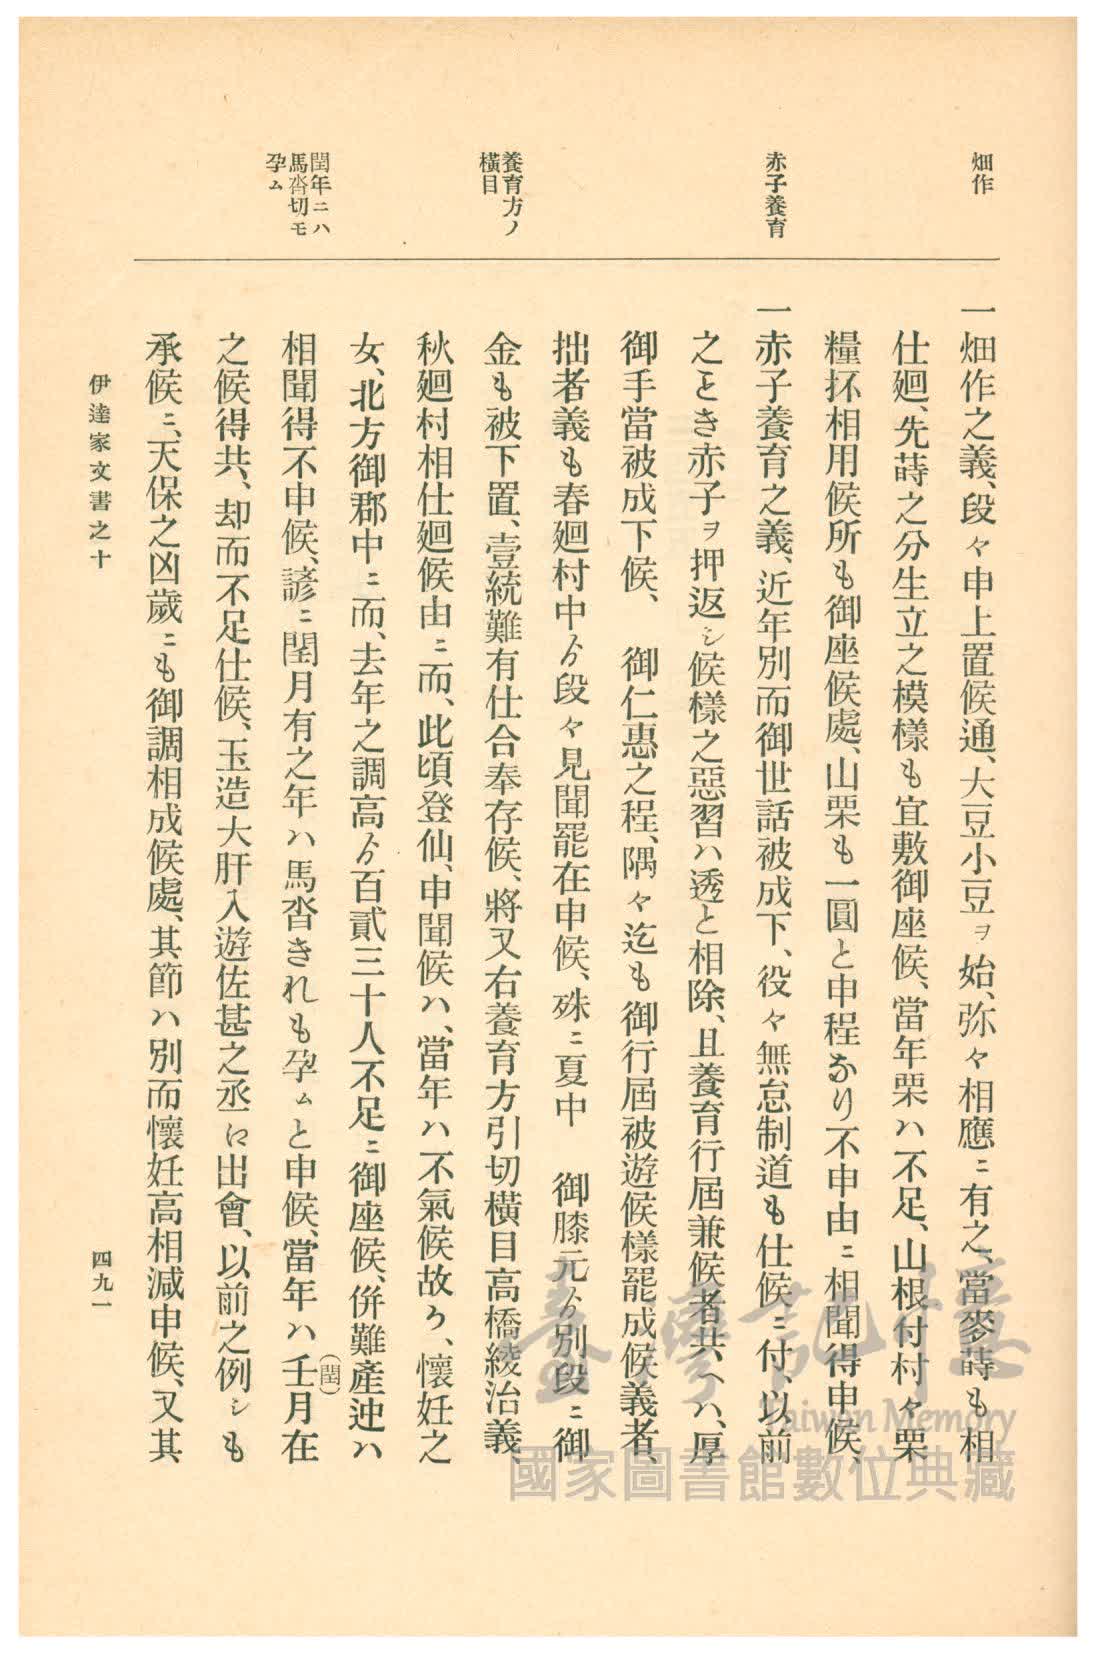 畑作
赤子養育
養育方ノ
横目
閏年ニハ
馬沓切モ
孕ム
一畑作之義、段々申上置候通、大豆小豆ヲ始、弥々相應ニ有之、當麥蒔も相
仕廻、先蒔之分生立之模様も宜敷御座候、當年栗ハ不足、山根付村々栗
糧抔相用候所も御座候處、山栗も一圓と申程なり不申由ニ相聞得申候、
一赤子養育之義、近年別而御世話被成下、役々無怠制道も仕候ニ付、以前
之とき赤子ヲ押返シ候樣之惡習ハ透と相除、且養育行屆兼候者共へハ、厚
御手當被成下候、　御仁惠之程、隅々迄も御行屆被遊候樣罷成候義者、
拙者義も春廻村中ゟ段々見聞罷在申候、殊ニ夏中　御膝元ゟ別段ニ御
金も被下置、壹統難有仕合奉存候、將又右養育方引切横目高橋綾治義、
秋廻村相仕廻候由ニ而、此頃登仙、申聞候ハ、當年ハ不氣候故か、懷妊之
女、北方御郡中ニ而、去年之調高ゟ百貳三十人不足ニ御座候、併難產迚ハ
相聞得不申候、諺ニ閏月有之年ハ馬沓きれも孕ムと申候、當年ハ壬月在
(閏)
之候得共、却而不足仕候、玉造大肝入遊佐甚之丞に出會、以前之例シも
承候ニ、天保之凶歲ニも御調相成候處、其節ハ別而懷妊高相減申候、又其
伊達家文書之十
四九一
臺灣記憶
Taiwan Memory
國家圖書館數位典藏